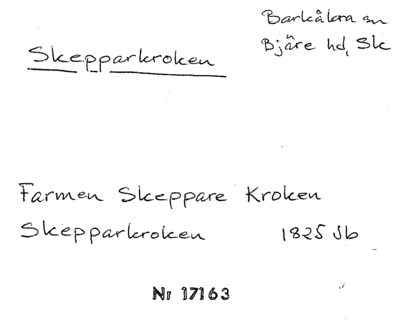 Barkåkra sn
Skepparkroken
Bjäre hd, Sk
Farmen Skeppare Kroken
Skepparkroken 1825 Jb
Nr 17163